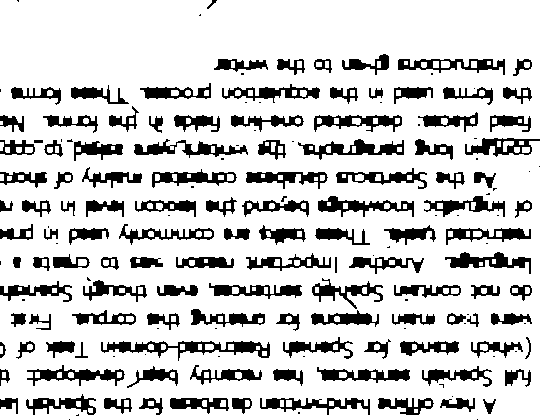 A new offline handwritten database for the Spanish
full Spanish sentences, has recently been developed:
(which stands for Spanish Restricted-domain Task of
were two main reasons for creating this corpus. First
do not contain Spanish sentences, even though Spanish
language. Another important reason was to create a
restricted tasks. These tasks are commonly used in
of linguistic knowledge beyond the lexicon level in the
As the Spartacus database consisted mainly of short
contain long paragraphs, the writers were asked to copy
fixed places: dedicated one-line fields in the forms.
the forms used in the acquisition process. These forms
of instructions given to the writer